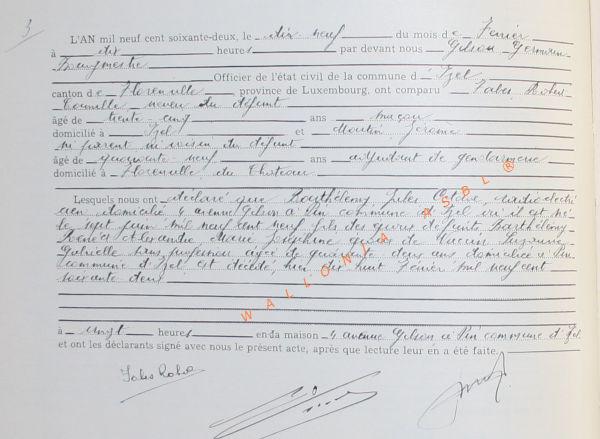 3
L'AN mil neuf cent soixante-deux, le dix neuf du mois de Février
à dix heures par devant nous Gilson Germain
Bourgmestre
Officier de l'état civil de la commune d'Izel
canton de Florenville province de Luxembourg, ont comparu Jabes Robert
neveu du défunt
âgé de trente cinq ans maçon
domicilié à Izel et Moulin Jérôme
ni parent ni voisin du défunt
âgé de quarante neuf ans adjudant de gendarmerie
domicilié à Florenville, du Chateau
Lesquels nous ont déclaré que Barthélemy, Jules Octave, radioélectri
cien domicilié 4 avenue Gilson à Pin commune d'Izel où il est né
le sept juin mil neuf cent neuf, fils des époux défunts, Barthélemy
René Alexandre Marie Joséphine époux de
Gabrielle sans profession agée de quarante deux ans domiciliée à Pin
commune d'Izel est décédé, hier, dix huit Février mil neuf cent
soixante deux
WALLONIA ASBL ®
à vingt heures en da maison 4 avenue Gilson à Pin commune d'Izel
et ont les déclarants signé avec nous le présent acte, après que lecture leur en a été faite.